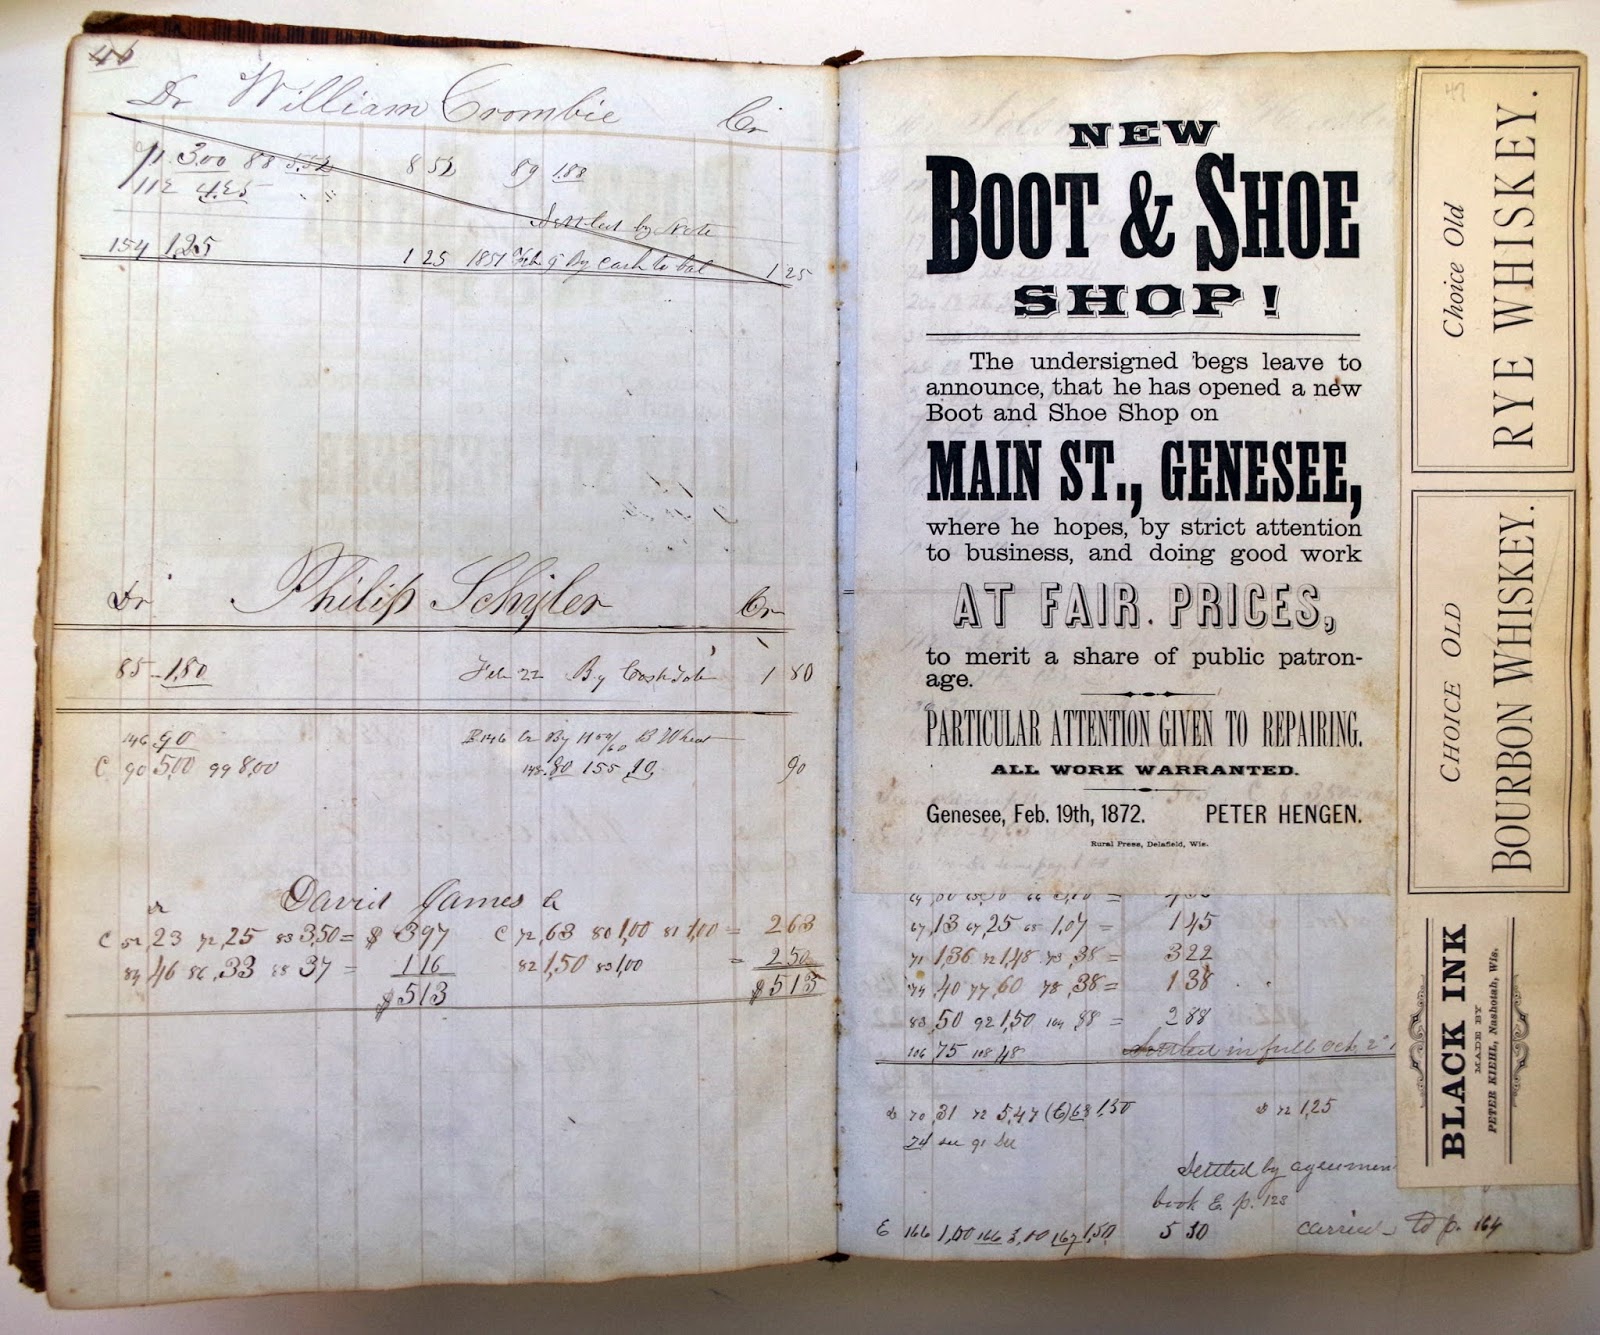 46
Dr William Crombie Cr
71 3.00 88 5.52 8 52 89 1.88
112 4.25
Settled by Note
154 1.25 1 25 1857 Feb 9 By cash to bal 1 25
Dr Philip Schyler Cr
85 - 1.80 Feb 22 By Cash 1 80
146 90 Cr By Wheat
C 90 5,00 99 8,00 148 .80 155 .10 90
David James
C 52 ,23 72 ,25 83 3,50 = $ 397 C 72 ,63 80 1,00 81 1,00 = 263
84 46 86 ,33 88 37 = 116 82 1,50 83 1,00 = 250
$513 $513
NEW
BOOT & SHOE
SHOP!
The undersigned begs leave to
announce, that he has opened a new
Boot and Shoe Shop on
MAIN ST., GENESEE,
where he hopes, by strict attention
to business, and doing good work
AT FAIR. PRICES,
to merit a share of public patron-
age.
PARTICULAR ATTENTION GIVEN TO REPAIRING.
ALL WORK WARRANTED.
Genesee, Feb. 19th, 1872. PETER HENGEN.
Rural Press, Delafield, Wis.
67 ,13 67 ,25 68 1,07 = 145
71 1,36 72 1,48 73 ,38 = 322
74 ,40 77 ,60 78 ,38 = 138
83 ,50 92 1,50 104 ,88 = 288
106 75 108 48 Settled in full Oct 2
70 ,31 72 5,47 (C) 68 1,50 72 1,25
74 91
Settled by
book E. p. 128
E 166 1,00 166 3,00 167 1,50 5 50 carried to p. 164
47
Choice Old
RYE WHISKEY.
CHOICE OLD
BOURBON WHISKEY.
BLACK INK
MADE BY
PETER KIEHL, Nashotah, Wis.